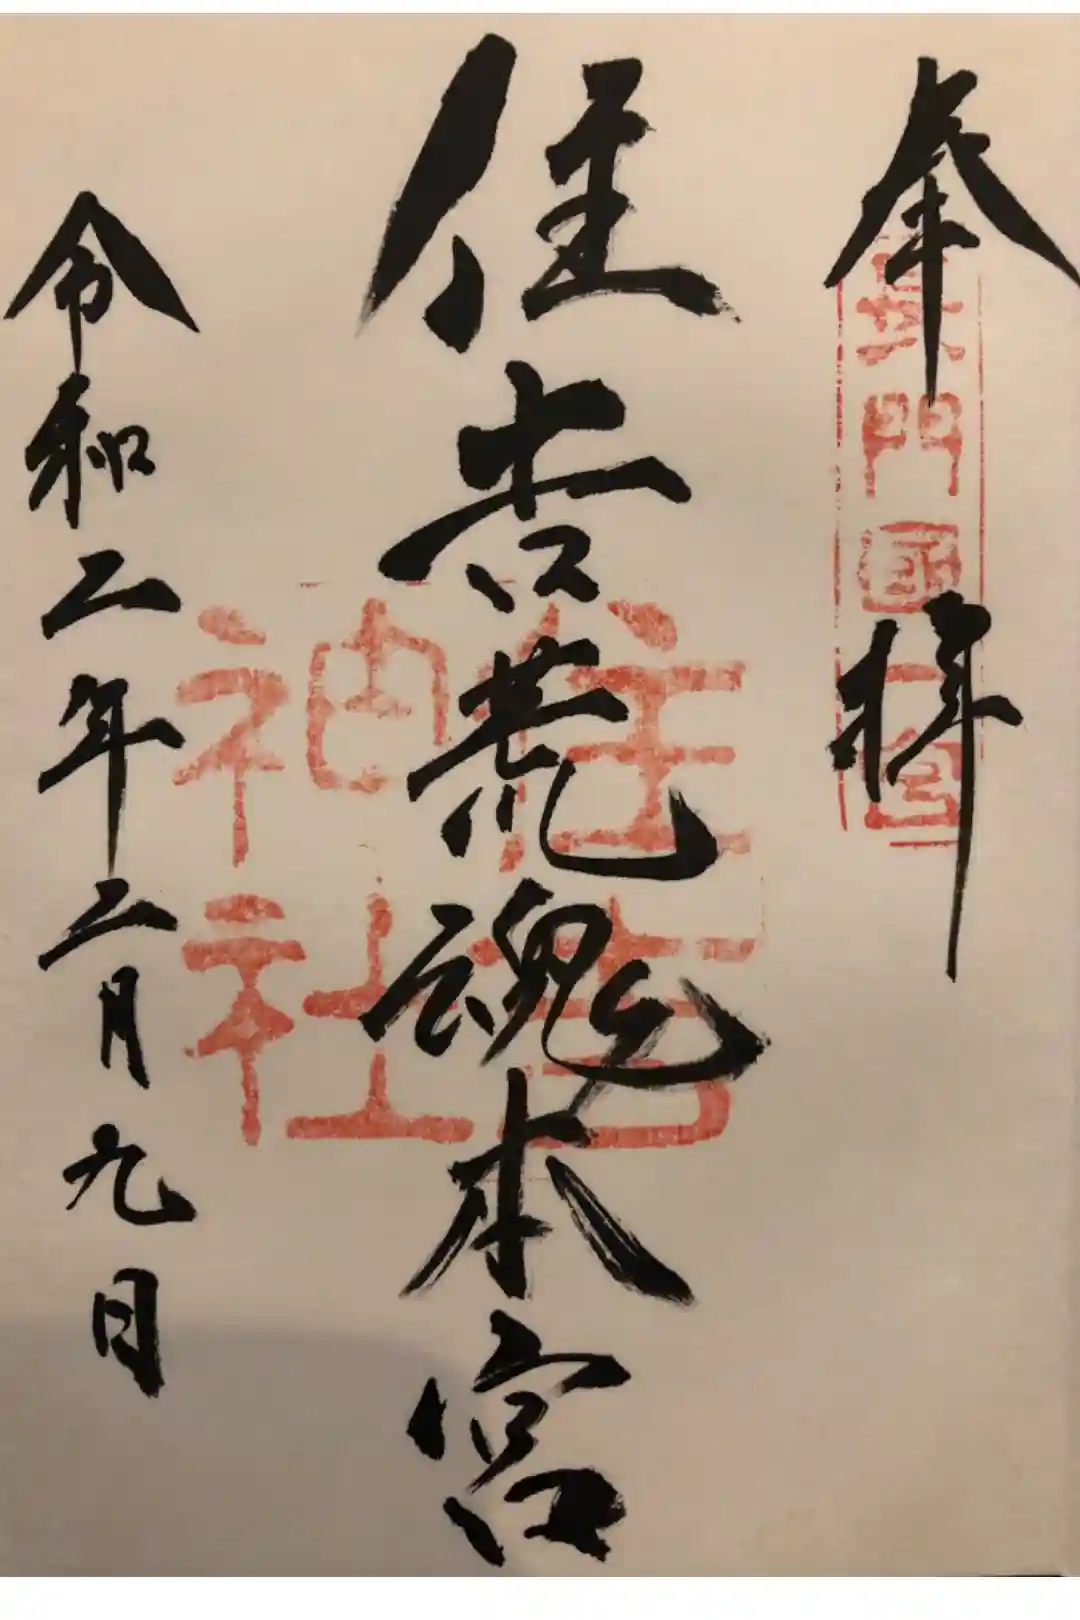 奉拝
長門國一宮
住吉荒魂本宮
住吉
神社
令和二年二月九日